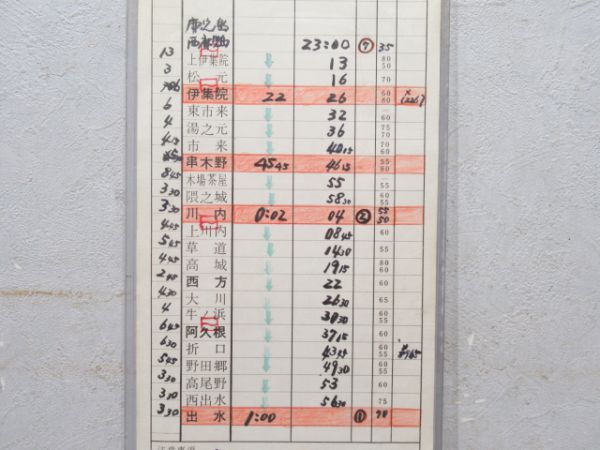 鹿児島
西鹿児島 23:00 ⑦ 35
13 上伊集院 13 80 50
3 松元 16 70
伊集院 22 26 60 80
6 東市来 32 60
4 湯之元 36 75 70
4 15 市来 40 15 70 60
串木野 45 45 46 15 55 80
8 45 木場茶屋 55
3 30 隈之城 58 30 60 55
3 30 川内 0:02 04 ② 55 50
4 45 上川内 08 45 60
5 45 草道 14 30 55
4 45 高城 19 15 80 60
2 45 西方 22 60
4 30 大川 26 30 65
4 牛ノ浜 30 30 60 55
6 45 阿久根 37 15 60
6 30 折口 43 45 60 55
5 45 野田郷 49 30 60 55
3 30 高尾野 53 60
3 30 西出水 56 30 75
3 30 出水 1:00 ①